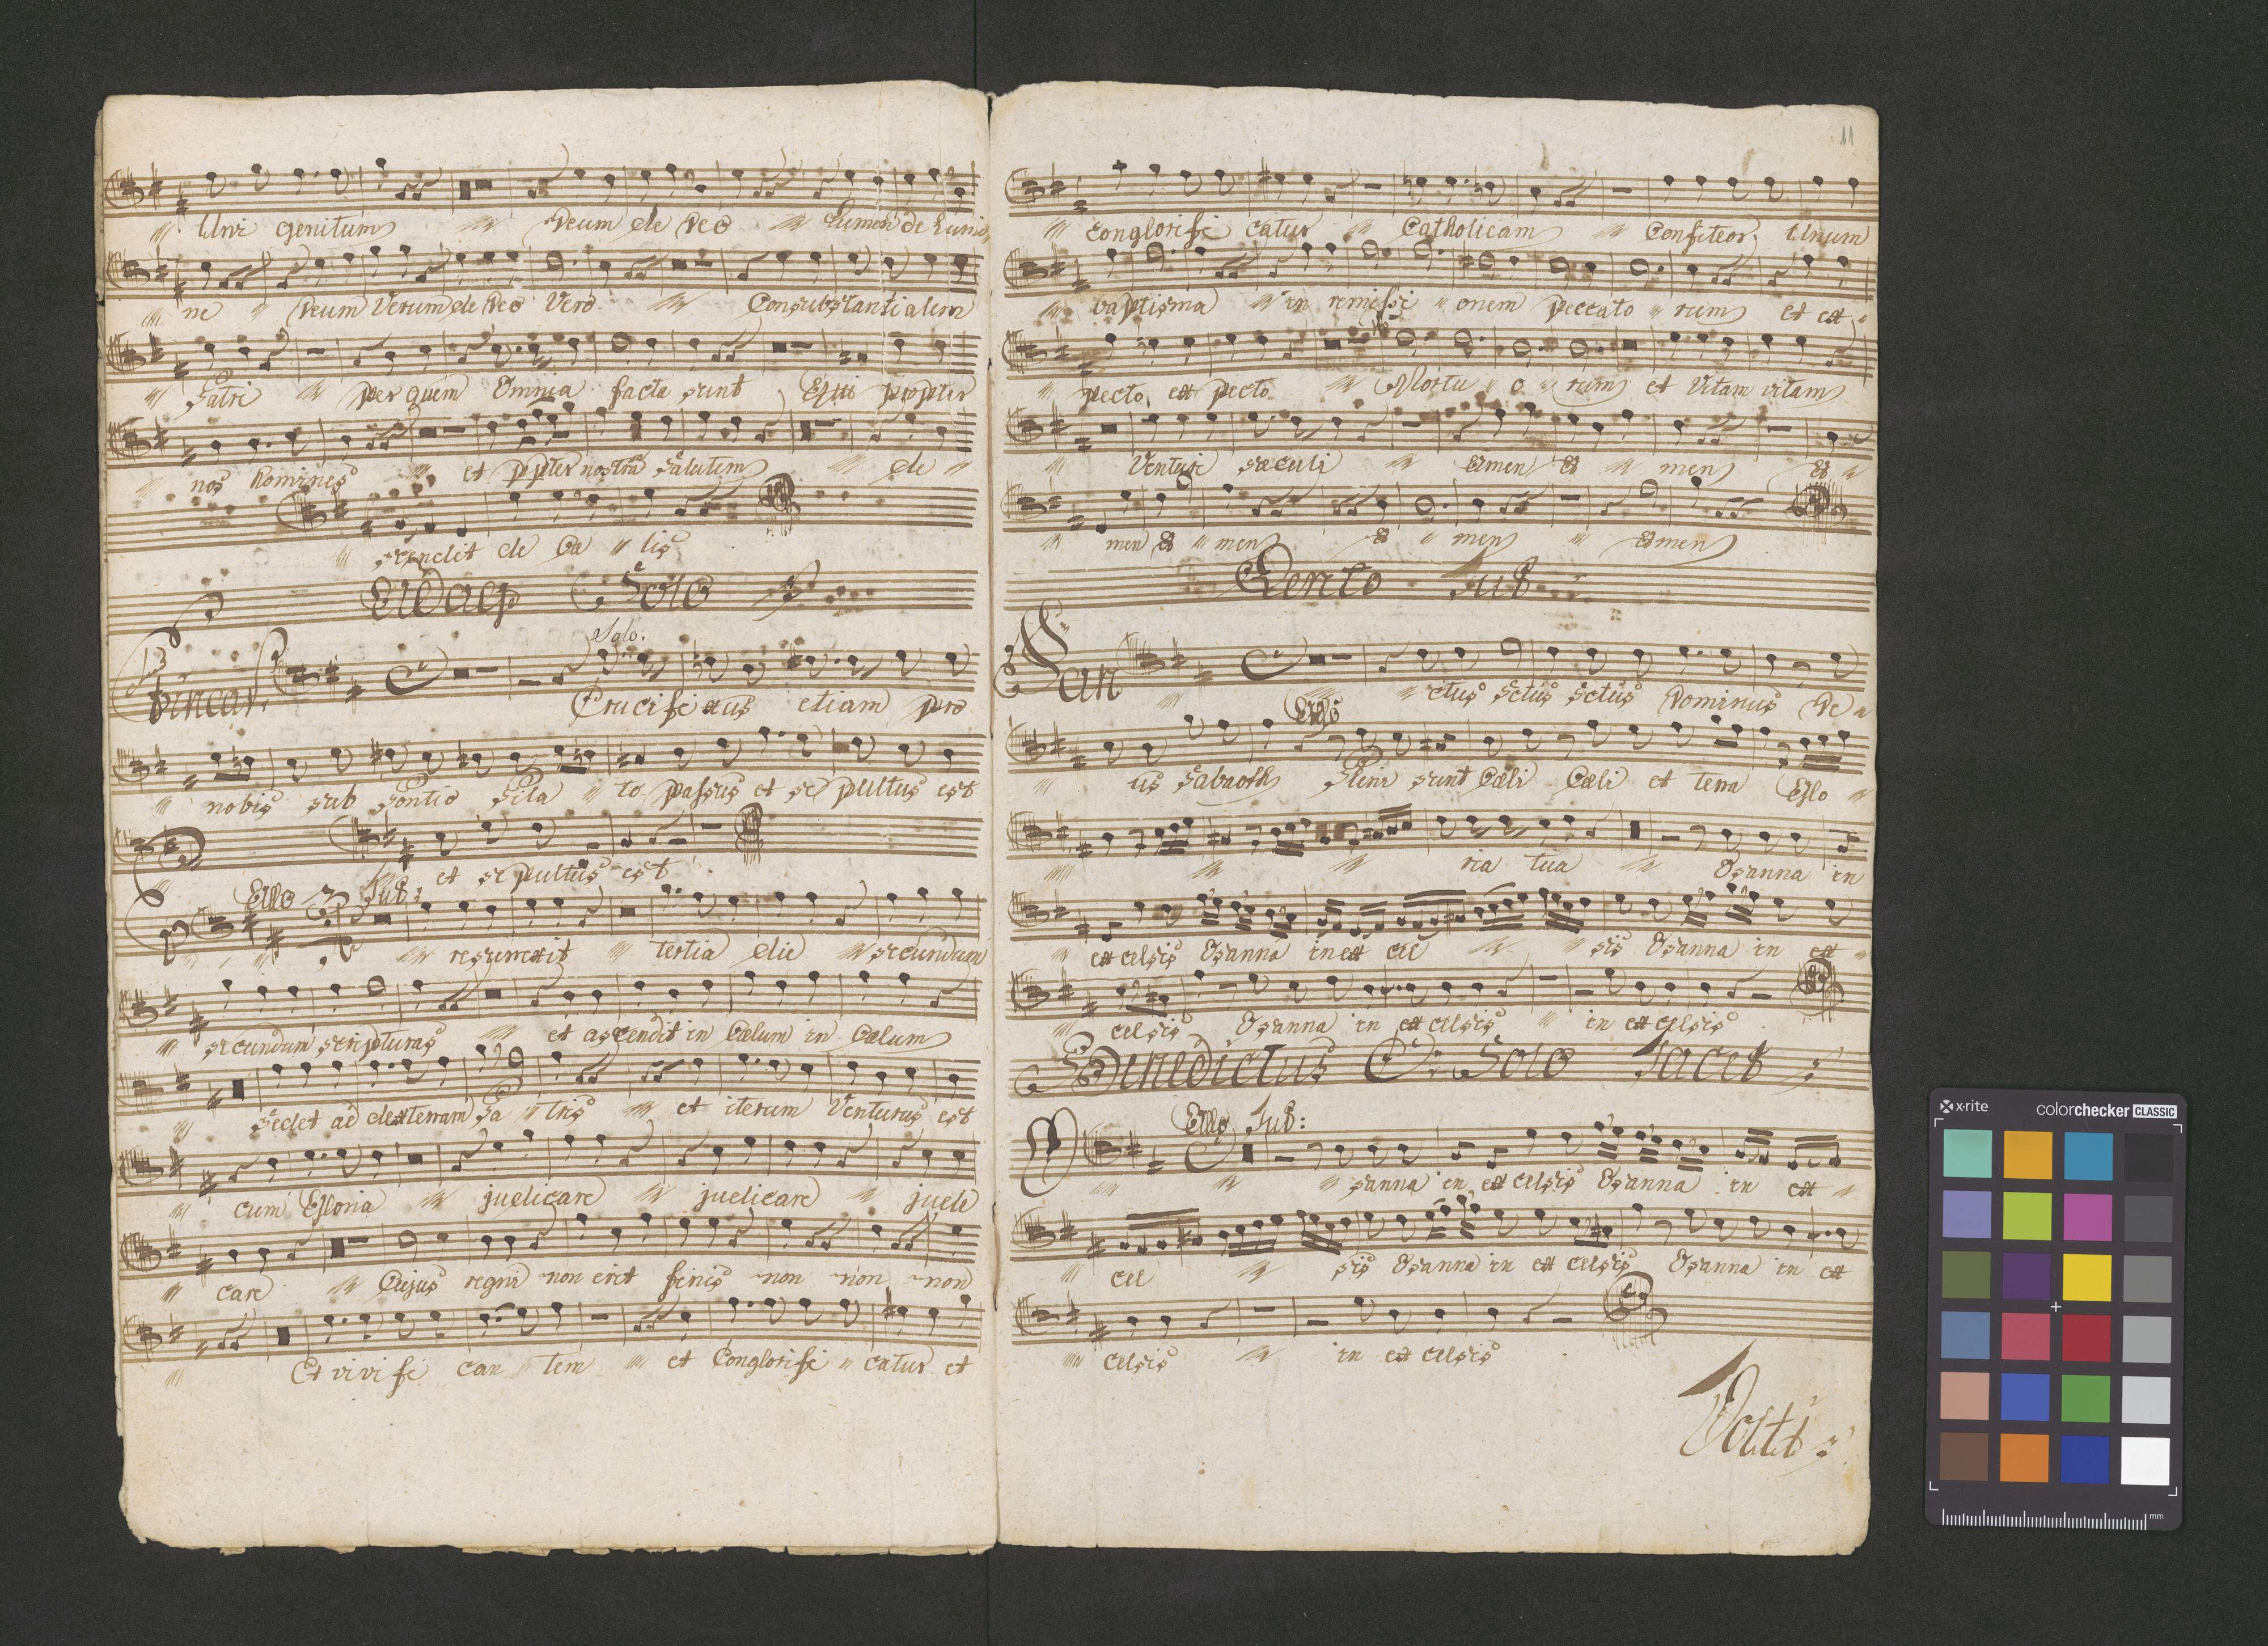 Uni genitum Deum de Deo Lumen de Lumi
ne Deum Verum de Deo Vero Consubstantialem
Patri per quem Omnia facta sunt Qui propter
nos homines et ppter nostrã Salutem de
scendit de Cæ lis
Solo
Solo.
Crucifixus etiam pro
nobis sub Pontio Pila to passus et se pultus est
et sepultus est
Allo Tut:
resurrexit tertia die secundum
secundum scripturas et ascendit in Cælum in Cælum
Sedet ad dexteram Pa tris et iterum Venturus est
cum Gloria judicare judicare judi
care Cujus regni non erit finis non non non
Et vivifi can tem et Conglorifi catur et
11
conglorifi catur Catholicam Confiteor Unum
baptisma in remissi onem peccato rum et ex
pecto ex pecto Mortu o rum et Vitam vitam
Venturi sæculi Amen A men A
men A men A men Amen
Lento Tut
San
ctus Sctus Sctus Dominus De
Allo
us Sabaoth Pleni sunt Cæli Cæli et terra Glo
ria tua Osanna in
ex celsis Osanna in ex cel sis Osanna in ex
celsis Osanna in ex celsis in ex celsis
Benedictus C: Solo Tacet
Allo Tut:
O sanna in ex celsis Osanna in ex
cel sis Osanna in ex celsis Osanna in ex
celsis in ex celsis
Volti
x-rite
colorchecker CLASSIC
mm